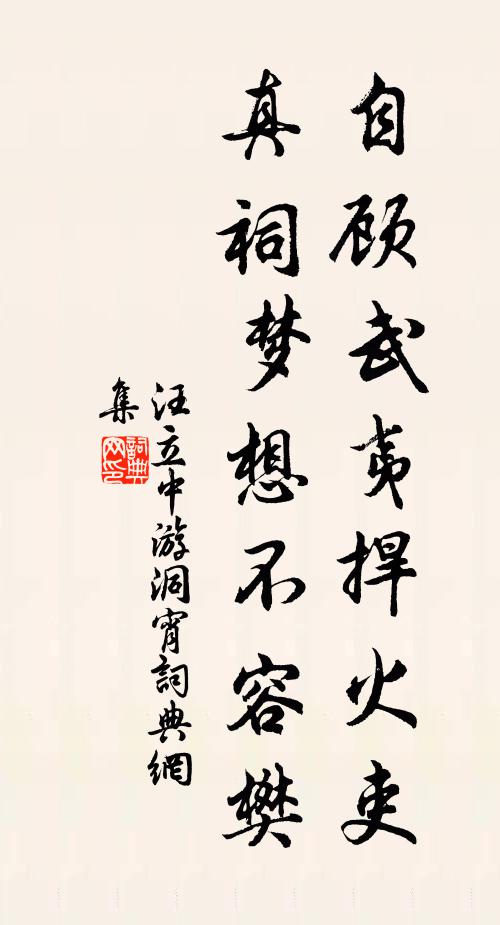 自顾武夷捍火吏
真祠梦想不容樊
汪立中游洞宵詞典網
集
詞典网印